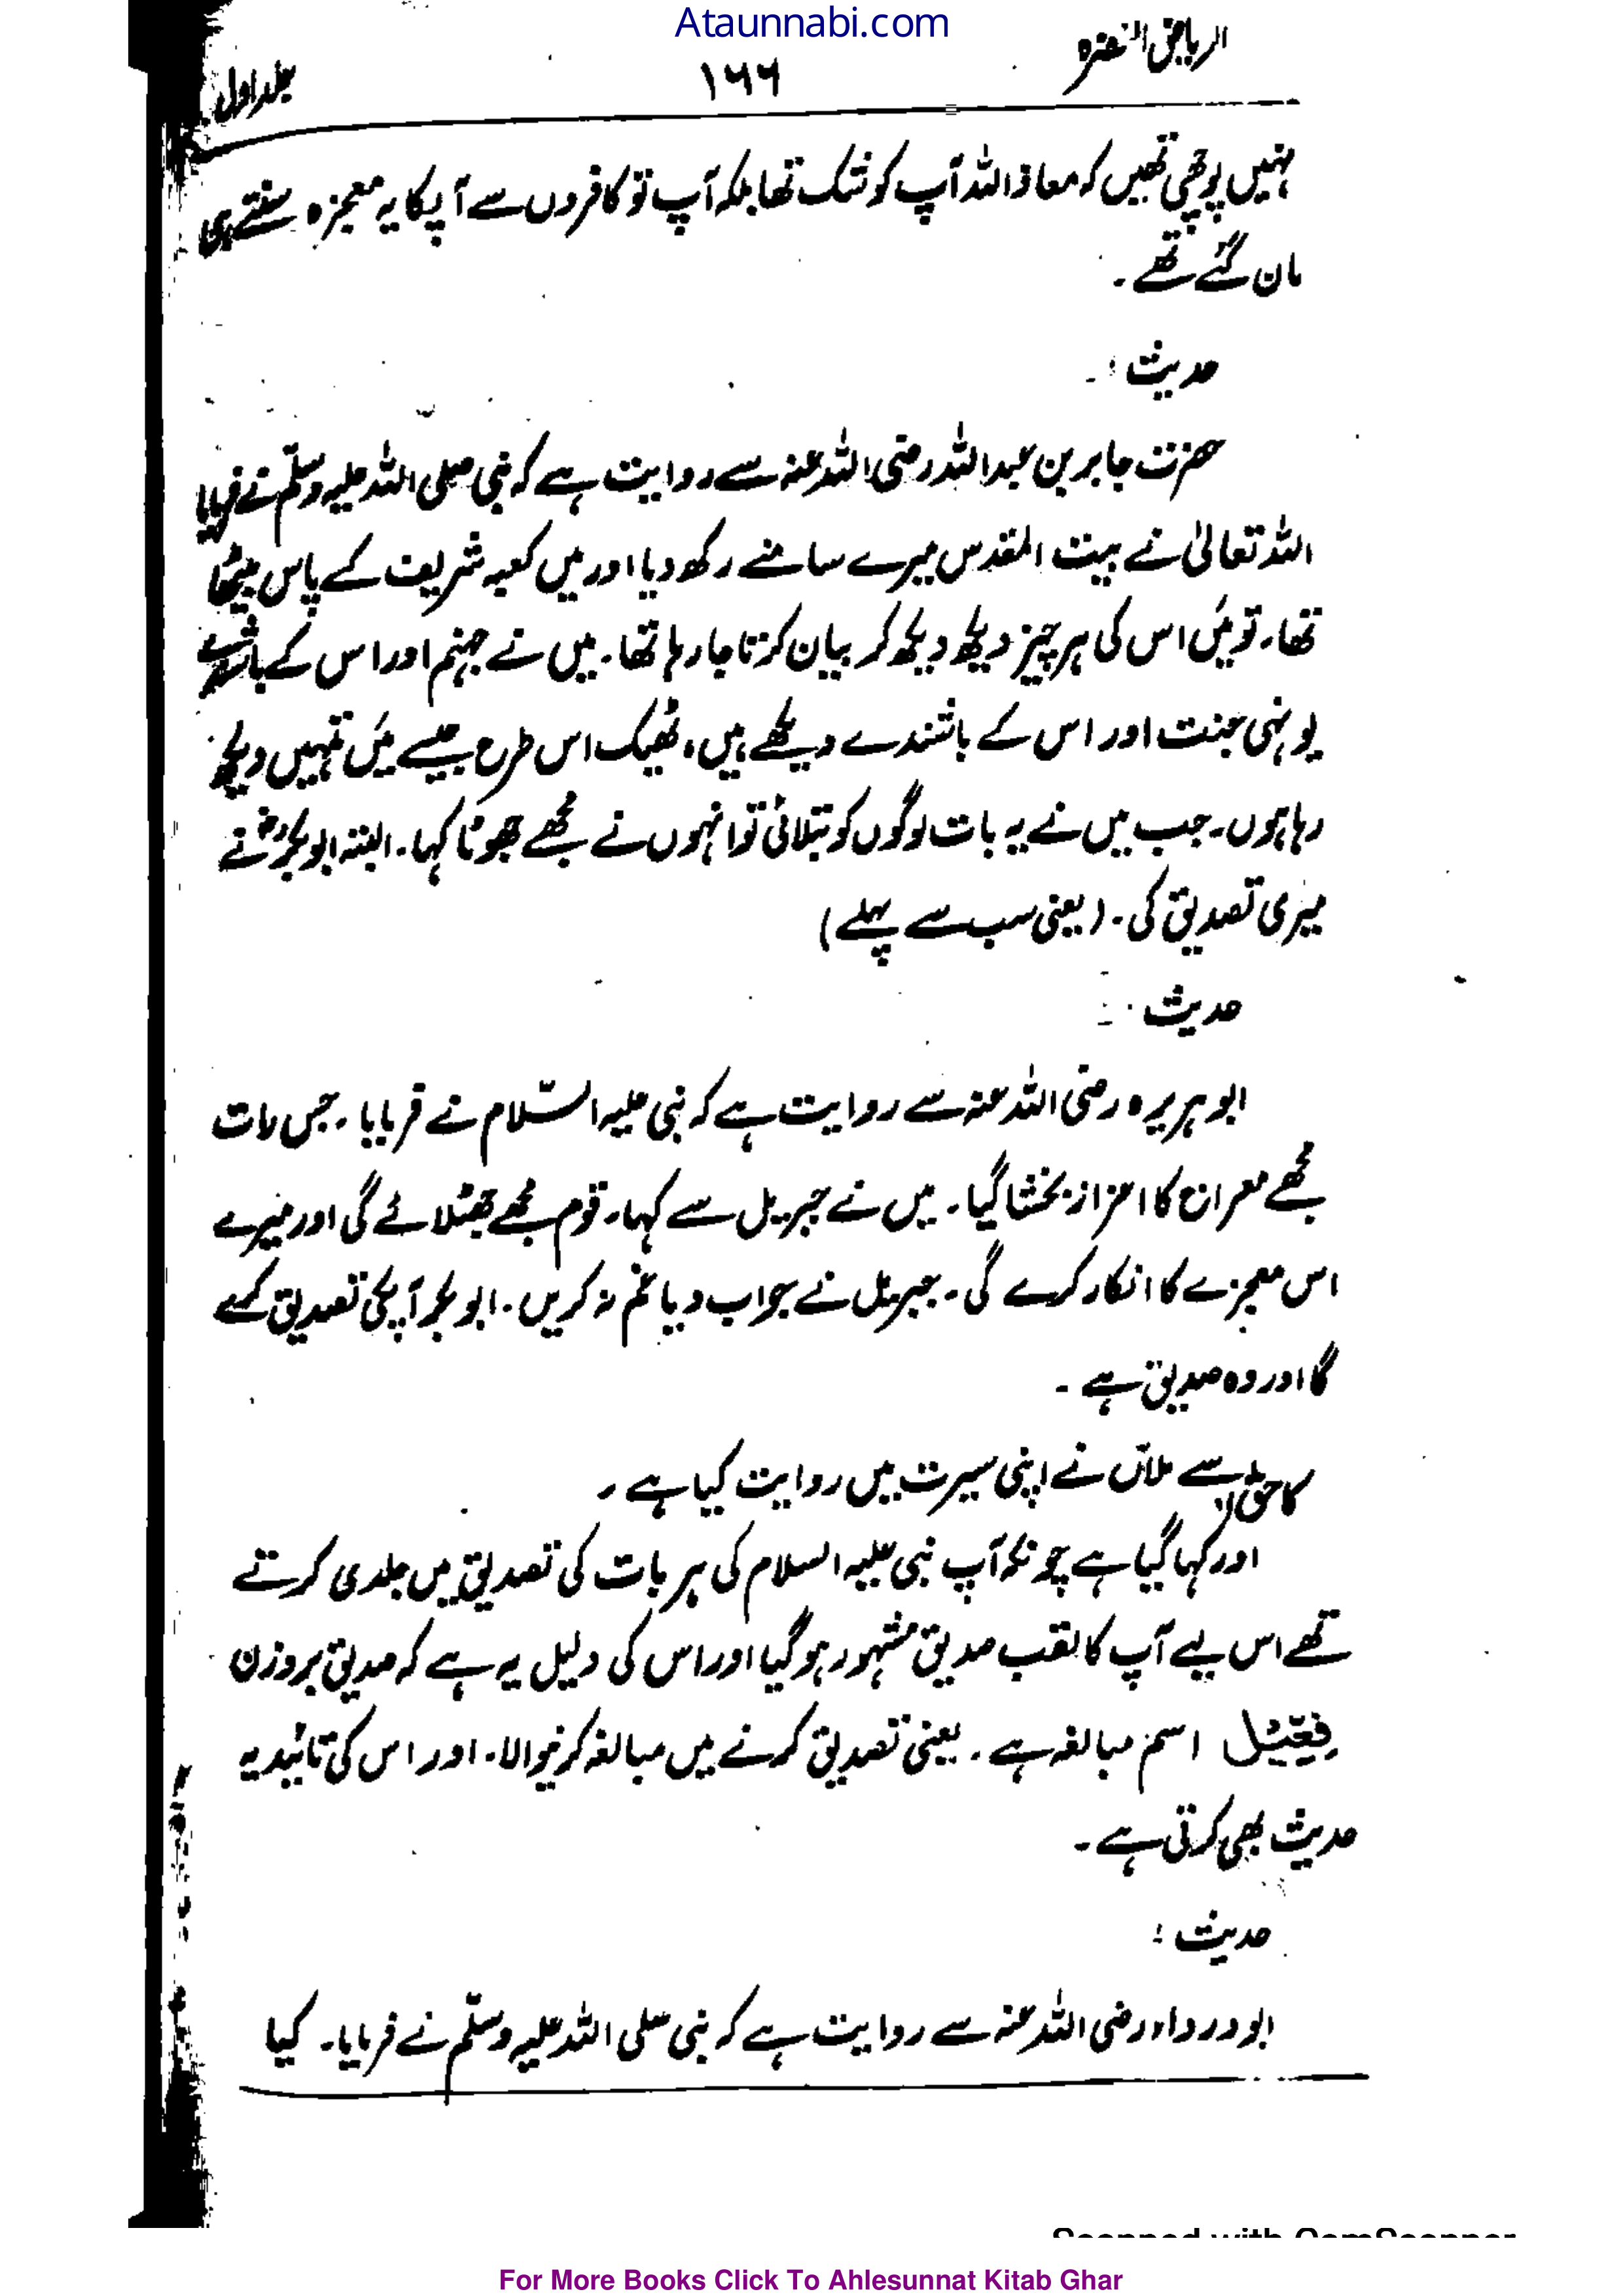 Ataunnabi.com
الریاض النضرہ
۱۶۶
جلد اول
نہیں پوچھی تھیں کہ معاذ اللہ آپ کو شک تھا بلکہ آپ تو کافروں سے آپکا یہ معجزہ سنتے ہی
مان گئے تھے۔
حدیث :-
حضرت جابر بن عبداللہ رضی اللہ عنہ سے روایت ہے کہ نبی صلی اللہ علیہ وسلّم نے فرمایا
اللہ تعالیٰ نے بیت المقدس میرے سامنے رکھ دیا اور میں کعبہ شریف کے پاس بیٹھا
تھا۔ تو میں اس کی ہر چیز دیکھ دیکھ کر بیان کرتا جا رہا تھا۔ میں نے جہنم اور اس کے باشندے
یونہی جنت اور اس کے باشندے دیکھے ہیں، ٹھیک اس طرح جیسے میں تمہیں دیکھ
رہا ہوں۔ جب میں نے یہ بات لوگوں کو بتلائی تو انہوں نے مجھے جھوٹا کہا۔ البتہ ابوبکرؓ نے
میری تصدیق کی۔ (یعنی سب سے پہلے)
حدیث :-
ابوہریرہ رضی اللہ عنہ سے روایت ہے کہ نبی علیہ السّلام نے فرمایا، جس رات
مجھے معراج کا اعزاز بخشا گیا۔ میں نے جبریل سے کہا۔ قوم مجھے جھٹلائے گی اور میرے
اس معجزے کا انکار کرے گی۔ جبریل نے جواب دیا غم نہ کریں۔ ابوبکر آپکی تصدیق کرے
گا اور وہ صدیق ہے۔
اسے ملاں نے اپنی سیرت میں روایت کیا ہے،
اور کہا گیا ہے چونکہ آپ نبی علیہ السلام کی ہر بات کی تصدیق میں جلدی کرتے
تھے اس لیے آپ کا لقب صدیق مشہور ہو گیا اور اس کی دلیل یہ ہے کہ صدیق بروزن
فِعِّیْل اسم مبالغہ ہے۔ یعنی تصدیق کرنے میں مبالغہ کرنیوالا۔ اور اس کی تائید یہ
حدیث بھی کرتی ہے۔
حدیث :
ابودرداء رضی اللہ عنہ سے روایت ہے کہ نبی صلی اللہ علیہ وسلّم نے فرمایا۔ کیا
For More Books Click To Ahlesunnat Kitab Ghar